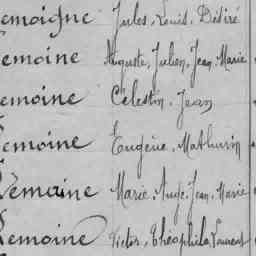 Lemoigne Jules, Louis, Désiré
Lemoine Auguste, Julien, Jean, Marie
Lemoine Célestin, Jean
Lemoine Eugène, Mathurin
Lemoine Marie, Ange, Jean, Marie
Lemoine Victor, Théophile, Laurent